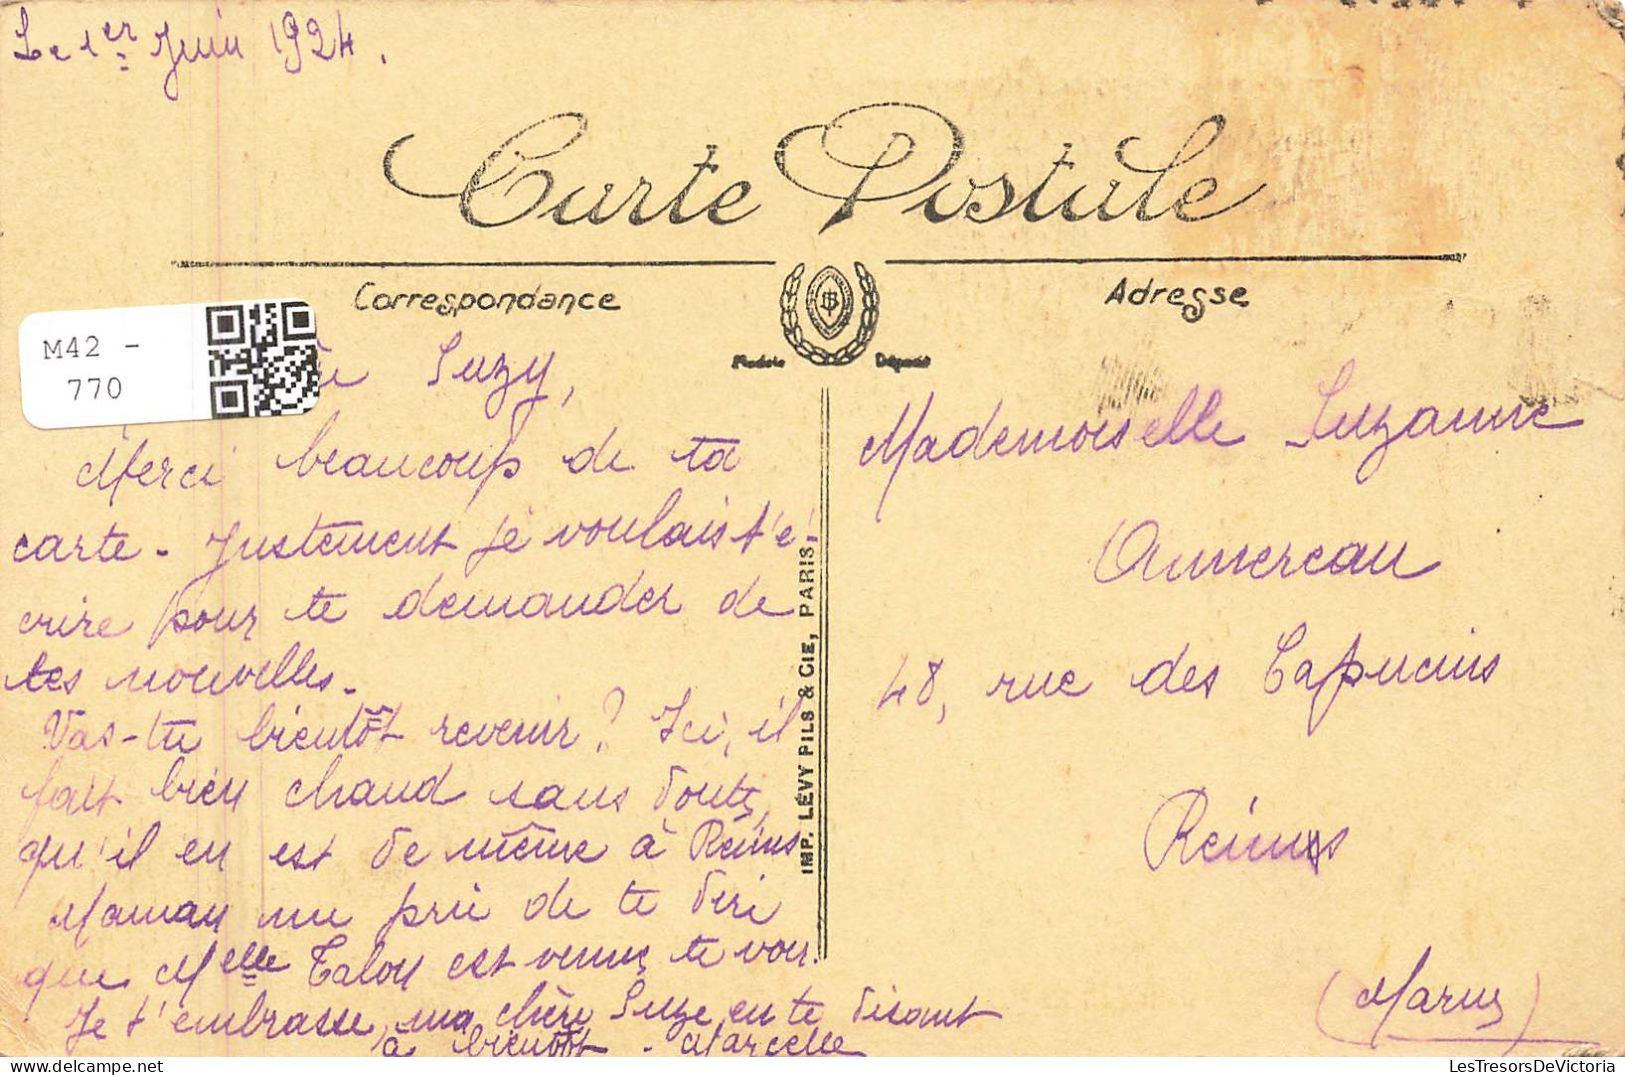 Le 1er Juin 1924.
Carte Postale
Correspondance
Adresse
Modèle Déposé
M42 -
770
Suzy,
Merci beaucoup de ta
carte - Justement je voulais t'é-
crire pour te demander de
tes nouvelles -
Vas-tu bientôt revenir ? Ici, il
fait bien chaud sans doute,
qu'il en est de même à Reims
Maman me prie de te dire
que Melle Talon est venue te voir.
Je t'embrasse, ma chère Suze, en te disant
à bientôt - Marcelle
IMP. LÉVY FILS & CIE, PARIS
Mademoiselle Suzanne
48, rue des Capucins
Reims
(Marne)
LesTresorsDeVictoria